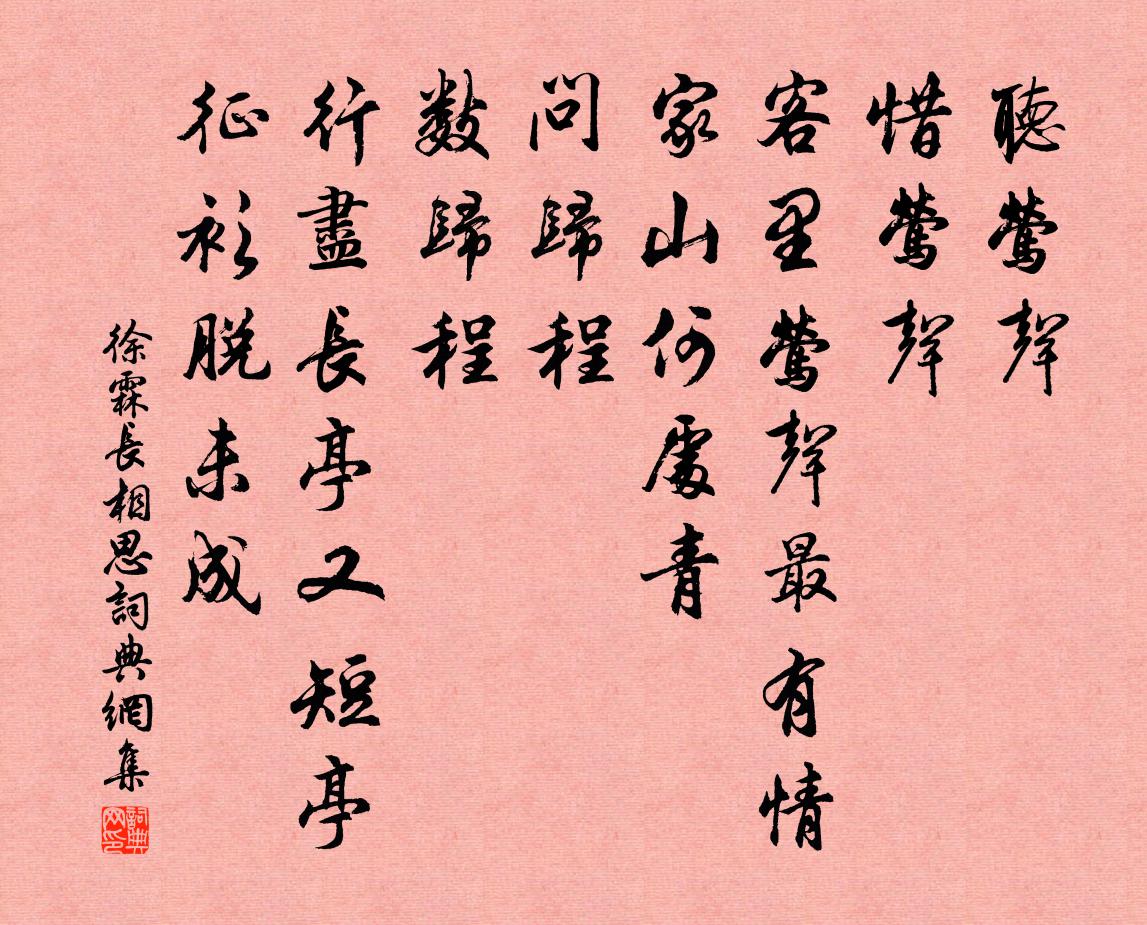 聽鶯聲
惜鶯聲
客里鶯聲最有情
家山何處青
問歸程
數歸程
行盡長亭又短亭
征衫脫未成
徐霖長相思詞典網集
詞典网印